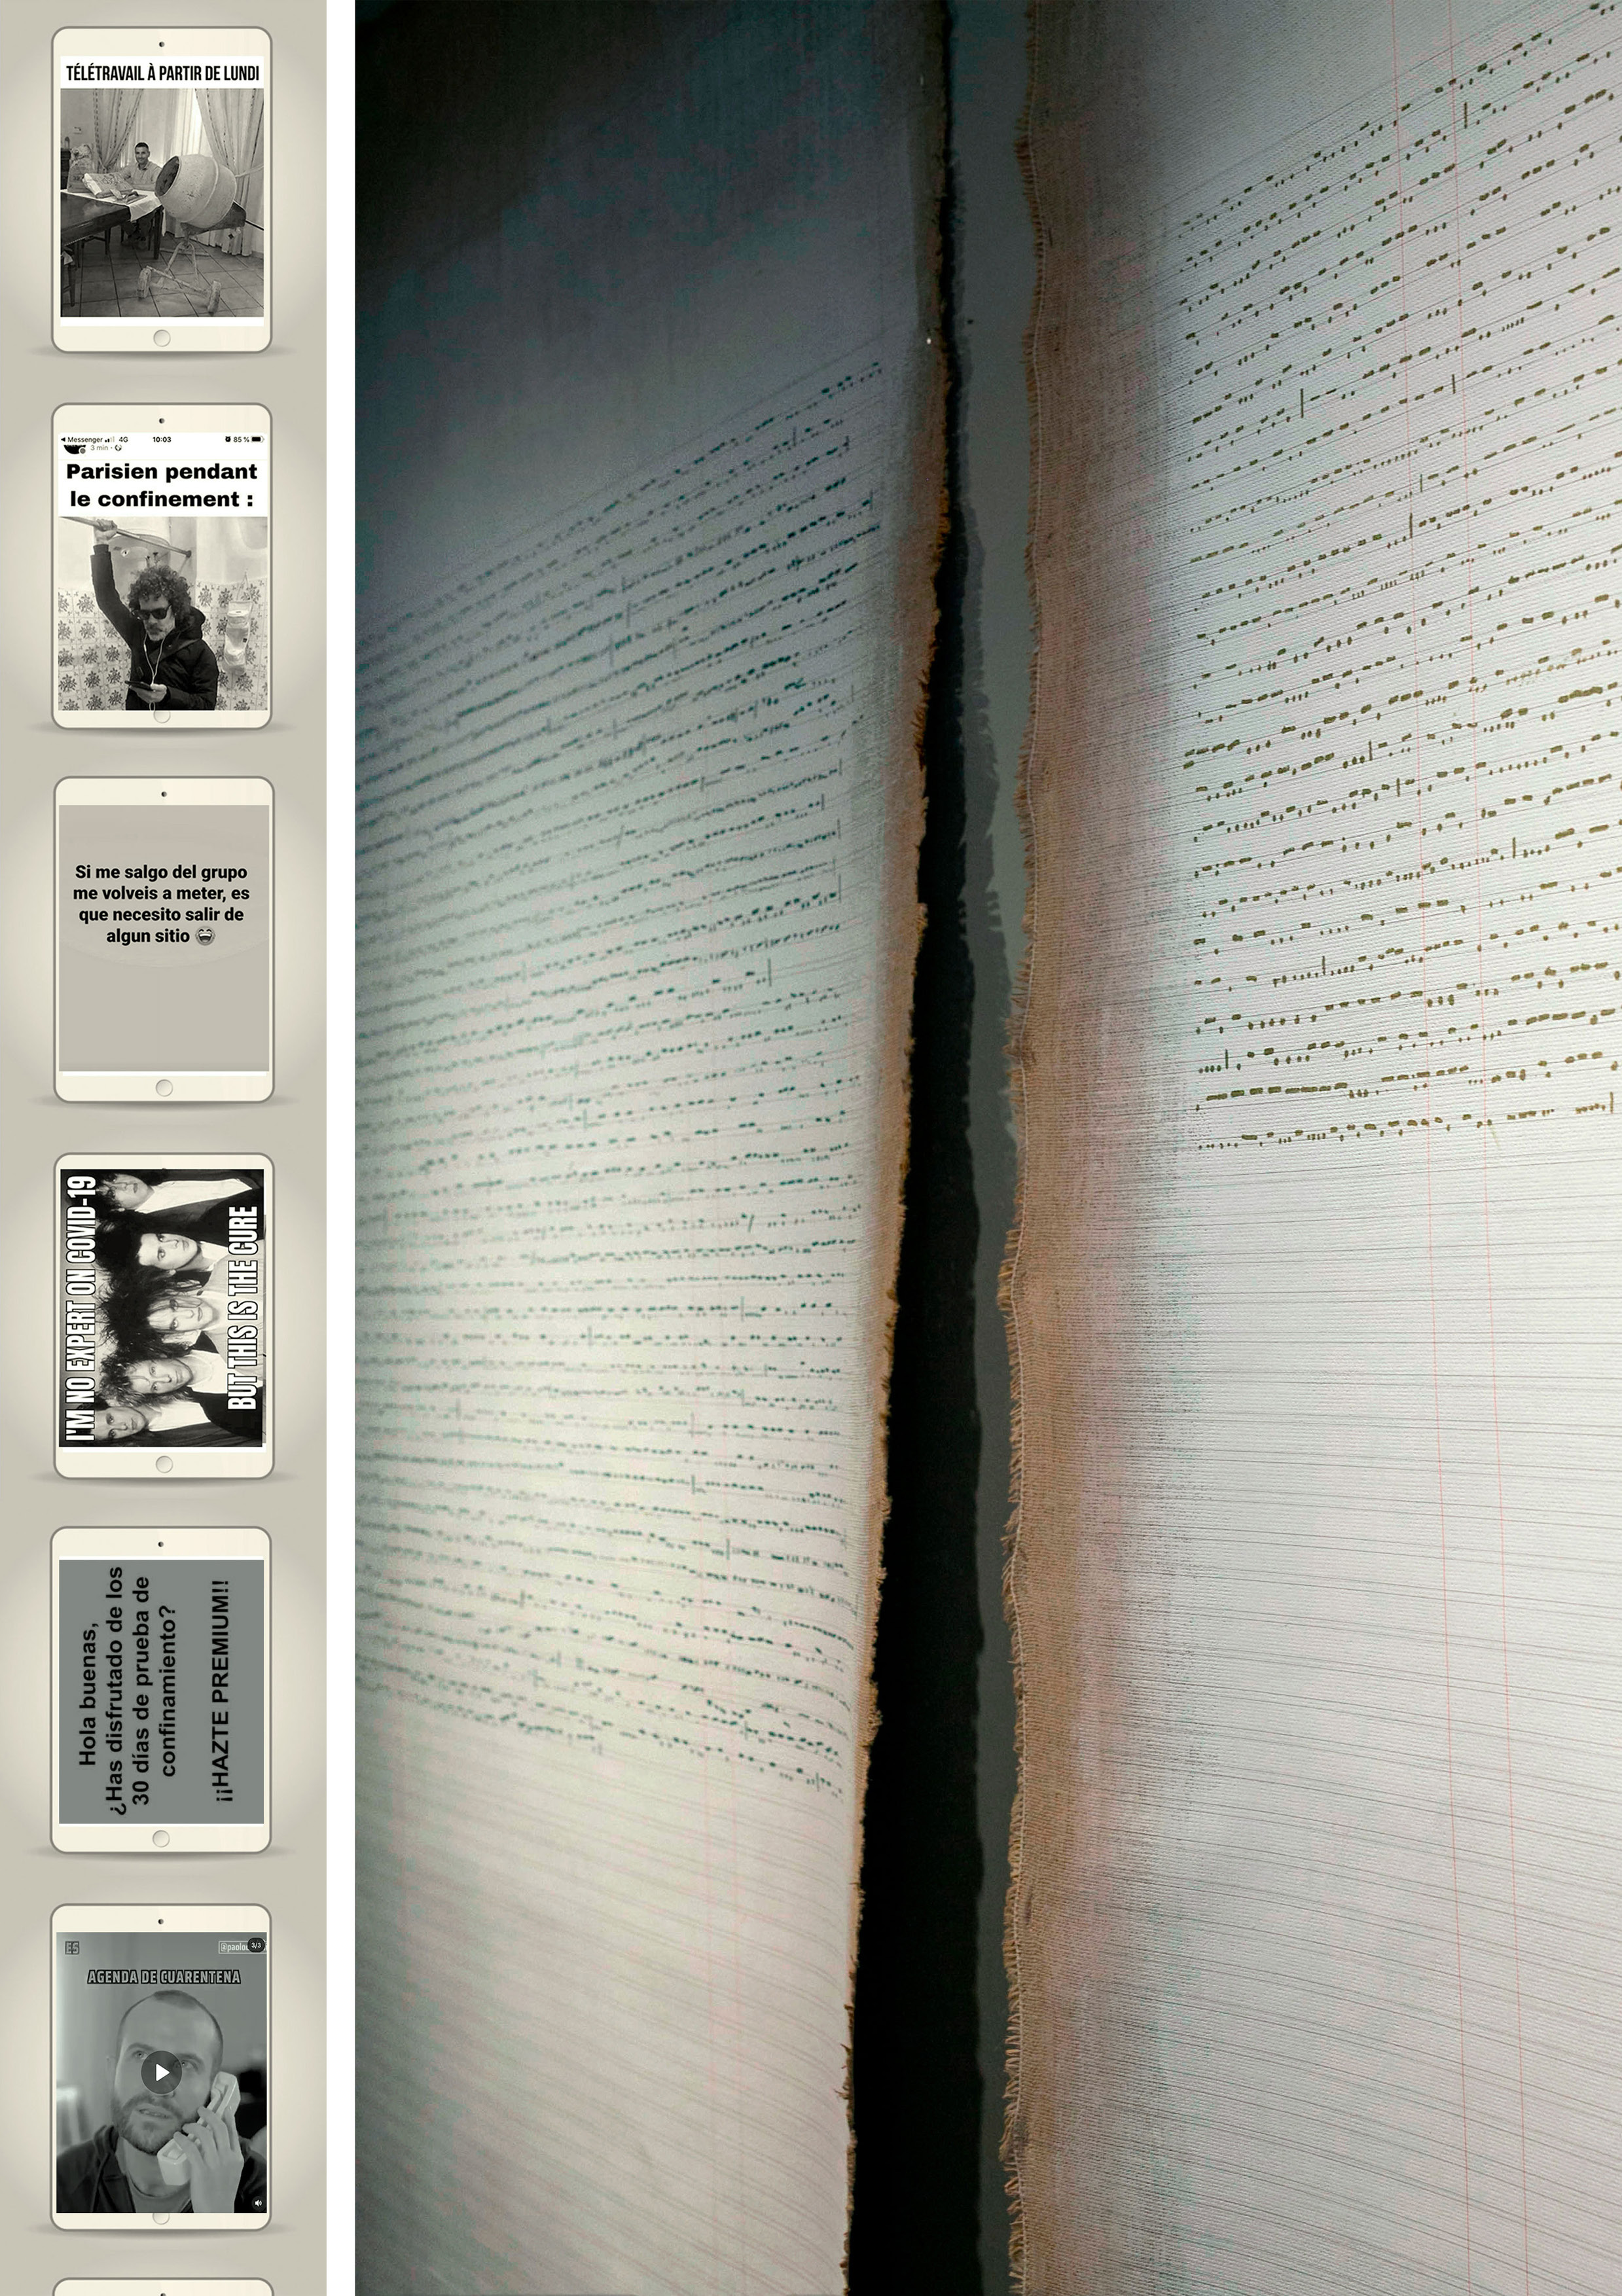 TÉLÉTRAVAIL À PARTIR DE LUNDI
Messenger 4G 10:03 85 %
3 min
Parisien pendant
le confinement :
Si me salgo del grupo
me volveis a meter, es
que necesito salir de
algun sitio 😂
I'M NO EXPERT ON COVID-19
BUT THIS IS THE CURE
Hola buenas,
¿Has disfrutado de los
30 días de prueba de
confinamiento?
¡¡HAZTE PREMIUM!!
ES
3/3
AGENDA DE CUARENTENA